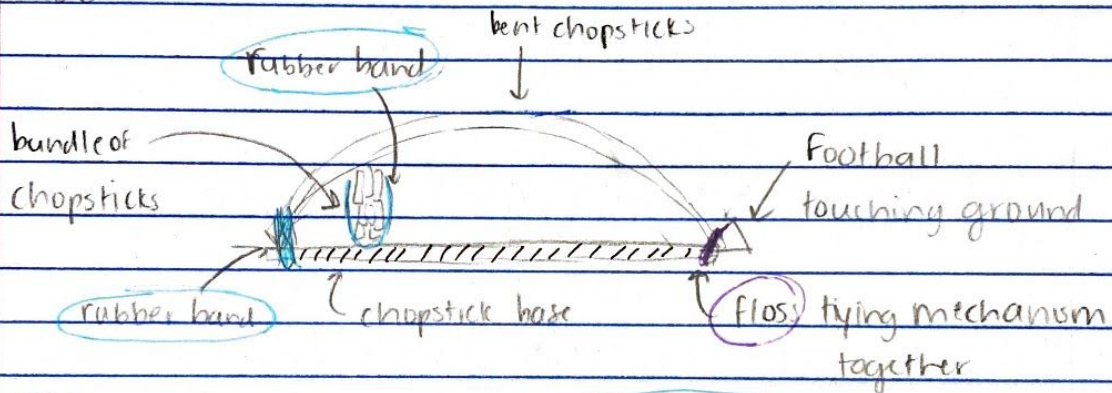 bent chopsticks
rubber band
bundle of
chopsticks
Football
touching ground
rubber band
chopstick base
floss tying mechanism
together